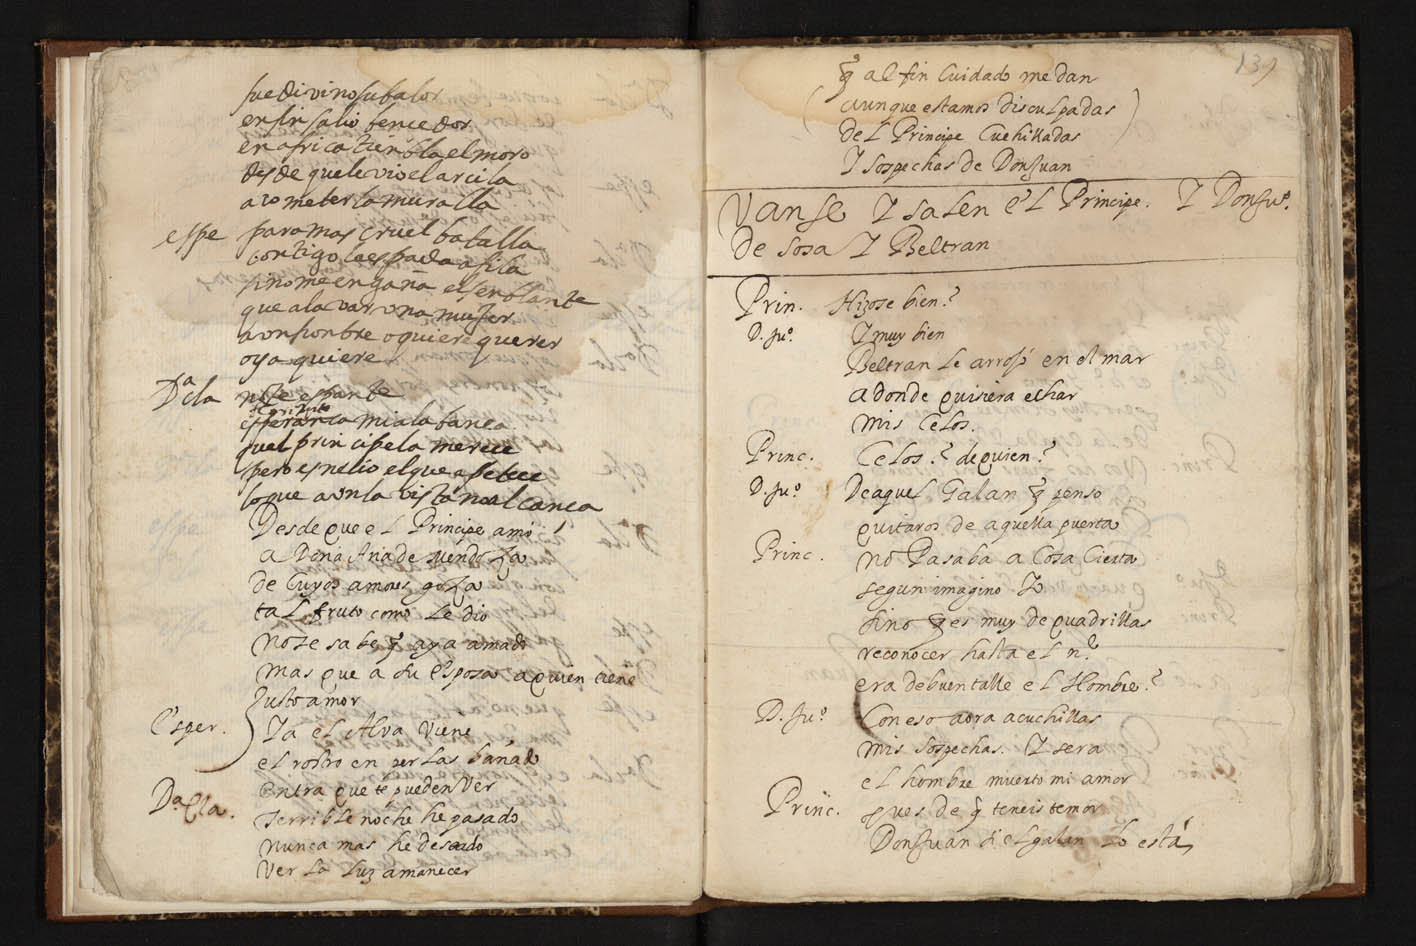 fue divino su balor
en fin salio bencedor
en africa tienbla el moro
desde que le vio el arcila
acometer la muralla
espe para mas cruel batalla
contigo la espada afila
si no me engaña el senblante
que alavar una mujer
a un honbre o quiere querer
o ya quiere
Dª cla no te espante
mia la banca
quel principe la merece
pero es necio el que apetece
lo que aun la vista no alcança
Desde que el Principe amó
a Doña Ana de mendoza
de Cuyos amores goza
tal fruto como le dio
no se sabe q̃ aya amado
mas que a su esposa a quien tiene
Justo amor
Esper. Ya el Alva viene
el rostro en perlas bañado
Dª Cla. Entra que te pueden Ver
Terrible noche he pasado
nunca mas he deseado
Ver la luz amanecer
139
q̃ al fin Cuidado me dan
(aunque estamos disculpadas)
del Principe Cuchilladas
Y sospechas de Don Juan
Vanse Y salen el Principe. Y Don Juº.
de sosa Y Beltran
Prin. Hizose bien?
D. Juº. Y muy bien
Beltran le arrojó en el mar
a donde quisiera echar
mis Celos.
Princ. Celos? de quien?
D. Juº De aquel Galan q̃ penso
quitaros de aquella puerta
Princ. no Pasaba a Cosa Cierta
segun imagino Yo
sino q̃ es muy de quadrillas
reconocer hasta el nē
era de buen talle el Hombre?
D. Juº Con eso aora acuchillas
mis sospechas. Y sera
el hombre muerto mi amor
Princ. pues de q̃ teneis temor
Don Juan si el galan lo está